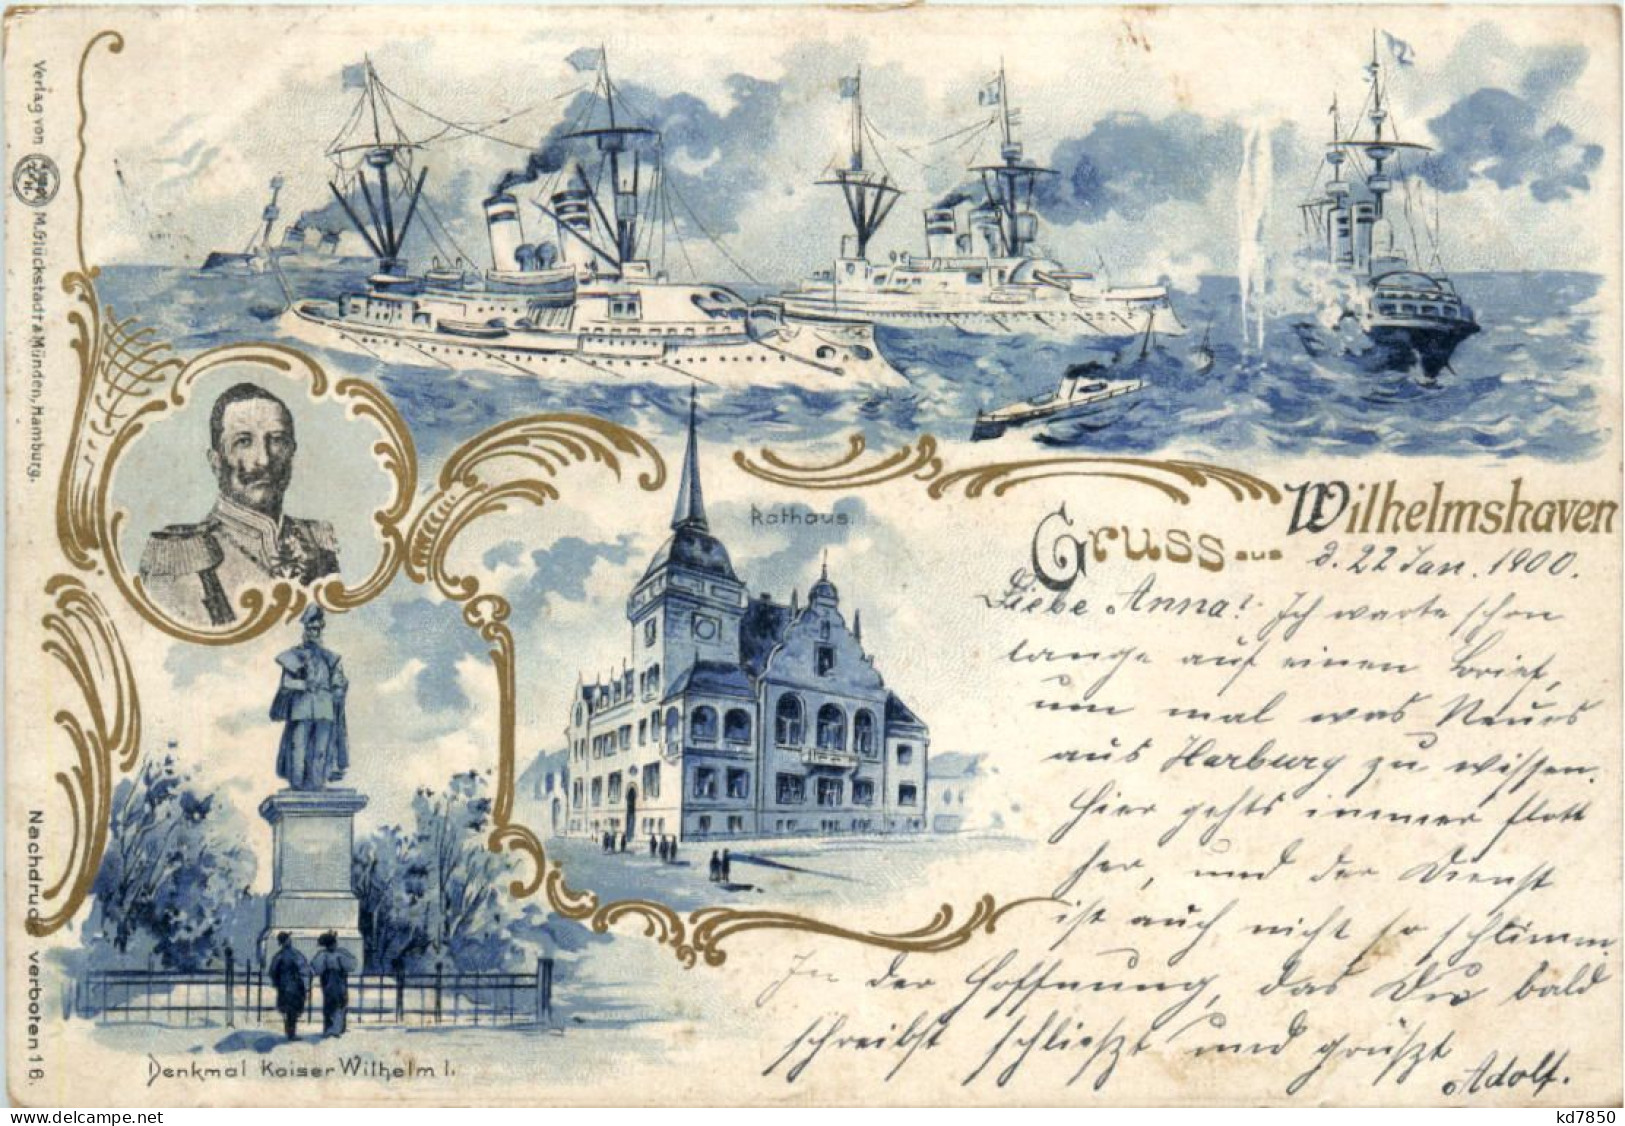 Verlag von M. Glückstadt & Münden, Hamburg.
Nachdruck verboten 116.
Rathaus.
Denkmal Kaiser Wilhelm I.
Gruss aus Wilhelmshaven
d. 22 Jan. 1900.
Liebe Anna! Ich warte schon
lange auf einen Brief,
um mal was Neues
aus Harburg zu wissen.
Hier gehts immer flott
her, und der Dienst
ist auch nicht so schlimm.
In der Hoffnung, das Du bald
schreibst schließt und grüßt
Adolf.
www.delcampe.net
kd7850